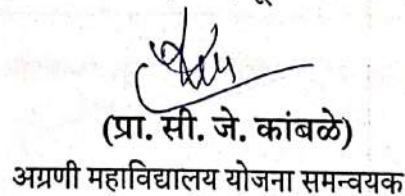 (प्रा. सी. जे. कांबळे)
अग्रणी महाविद्यालय योजना समन्वयक